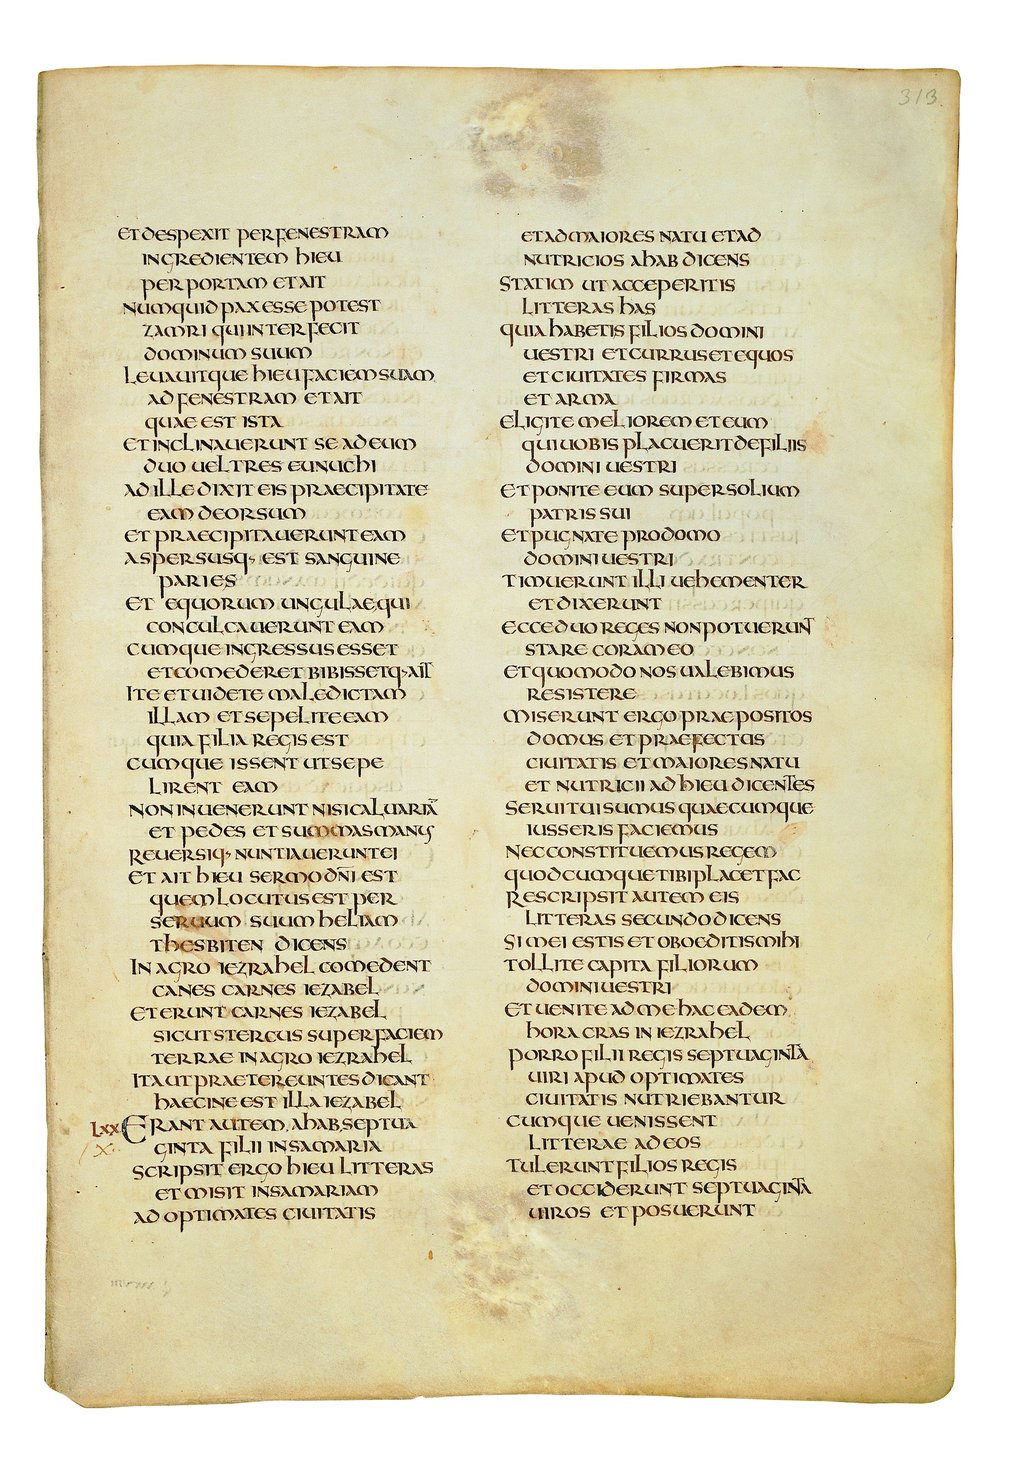 313
ET DESPEXIT PER FENESTRAM
INGREDIENTEM HIEU
PER PORTAM ET AIT
NUMQUID PAX ESSE POTEST
ZAMRI QUI INTERFECIT
DOMINUM SUUM
LEUAUITQUE HIEU FACIEM SUAM
AD FENESTRAM ET AIT
QUAE EST ISTA
ET INCLINAUERUNT SE AD EUM
DUO UEL TRES EUNUCHI
AD ILLE DIXIT EIS PRAECIPITATE
EAM DEORSUM
ET PRAECIPITAUERUNT EAM
ASPERSUSQ· EST SANGUINE
PARIES
ET EQUORUM UNGULAE QUI
CONCULCAUERUNT EAM
CUMQUE INGRESSUS ESSET
ET COMEDERET BIBISSETQ· AIT
ITE ET UIDETE MALEDICTAM
ILLAM ET SEPELITE EAM
QUIA FILIA REGIS EST
CUMQUE ISSENT UT SEPE
LIRENT EAM
NON INUENERUNT NISI CALUARIĀ
ET PEDES ET SUMMAS MANUS
REUERSIQ· NUNTIAUERUNT EI
ET AIT HIEU SERMO DN̄I EST
QUEM LOCUTUS EST PER
SERUUM SUUM HELIAM
THESBITEN DICENS
IN AGRO IEZRAHEL COMEDENT
CANES CARNES IEZABEL
ET ERUNT CARNES IEZABEL
SICUT STERCUS SUPER FACIEM
TERRAE IN AGRO IEZRAHEL
ITA UT PRAETEREUNTES DICANT
HAECINE EST ILLA IEZABEL
LXX ERANT AUTEM AHAB SEPTUA
X· GINTA FILII IN SAMARIA
SCRIPSIT ERGO HIEU LITTERAS
ET MISIT IN SAMARIAM
AD OPTIMATES CIUITATIS
ET AD MAIORES NATU ET AD
NUTRICIOS AHAB DICENS
STATIM UT ACCEPERITIS
LITTERAS HAS
QUIA HABETIS FILIOS DOMINI
UESTRI ET CURRUS ET EQUOS
ET CIUITATES FIRMAS
ET ARMA
ELIGITE MELIOREM ET EUM
QUI UOBIS PLACUERIT DE FILIIS
DOMINI UESTRI
ET PONITE EUM SUPER SOLIUM
PATRIS SUI
ET PUGNATE PRO DOMO
DOMINI UESTRI
TIMUERUNT ILLI UEHEMENTER
ET DIXERUNT
ECCE DUO REGES NON POTUERUNT
STARE CORAM EO
ET QUOMODO NOS UALEBIMUS
RESISTERE
MISERUNT ERGO PRAEPOSITOS
DOMUS ET PRAEFECTUS
CIUITATIS ET MAIORES NATU
ET NUTRICII AD HIEU DICENTES
SERUI TUI SUMUS QUAECUMQUE
IUSSERIS FACIEMUS
NEC CONSTITUEMUS REGEM
QUODCUMQUE TIBI PLACET FAC
RESCRIPSIT AUTEM EIS
LITTERAS SECUNDO DICENS
SI MEI ESTIS ET OBOEDITIS MIHI
TOLLITE CAPITA FILIORUM
DOMINI UESTRI
ET UENITE AD ME HAC EADEM
HORA CRAS IN IEZRAHEL
PORRO FILII REGIS SEPTUAGINTA
UIRI APUD OPTIMATES
CIUITATIS NUTRIEBANTUR
CUMQUE UENISSENT
LITTERAE AD EOS
TULERUNT FILIOS REGIS
ET OCCIDERUNT SEPTUAGINTA
UIROS ET POSUERUNT